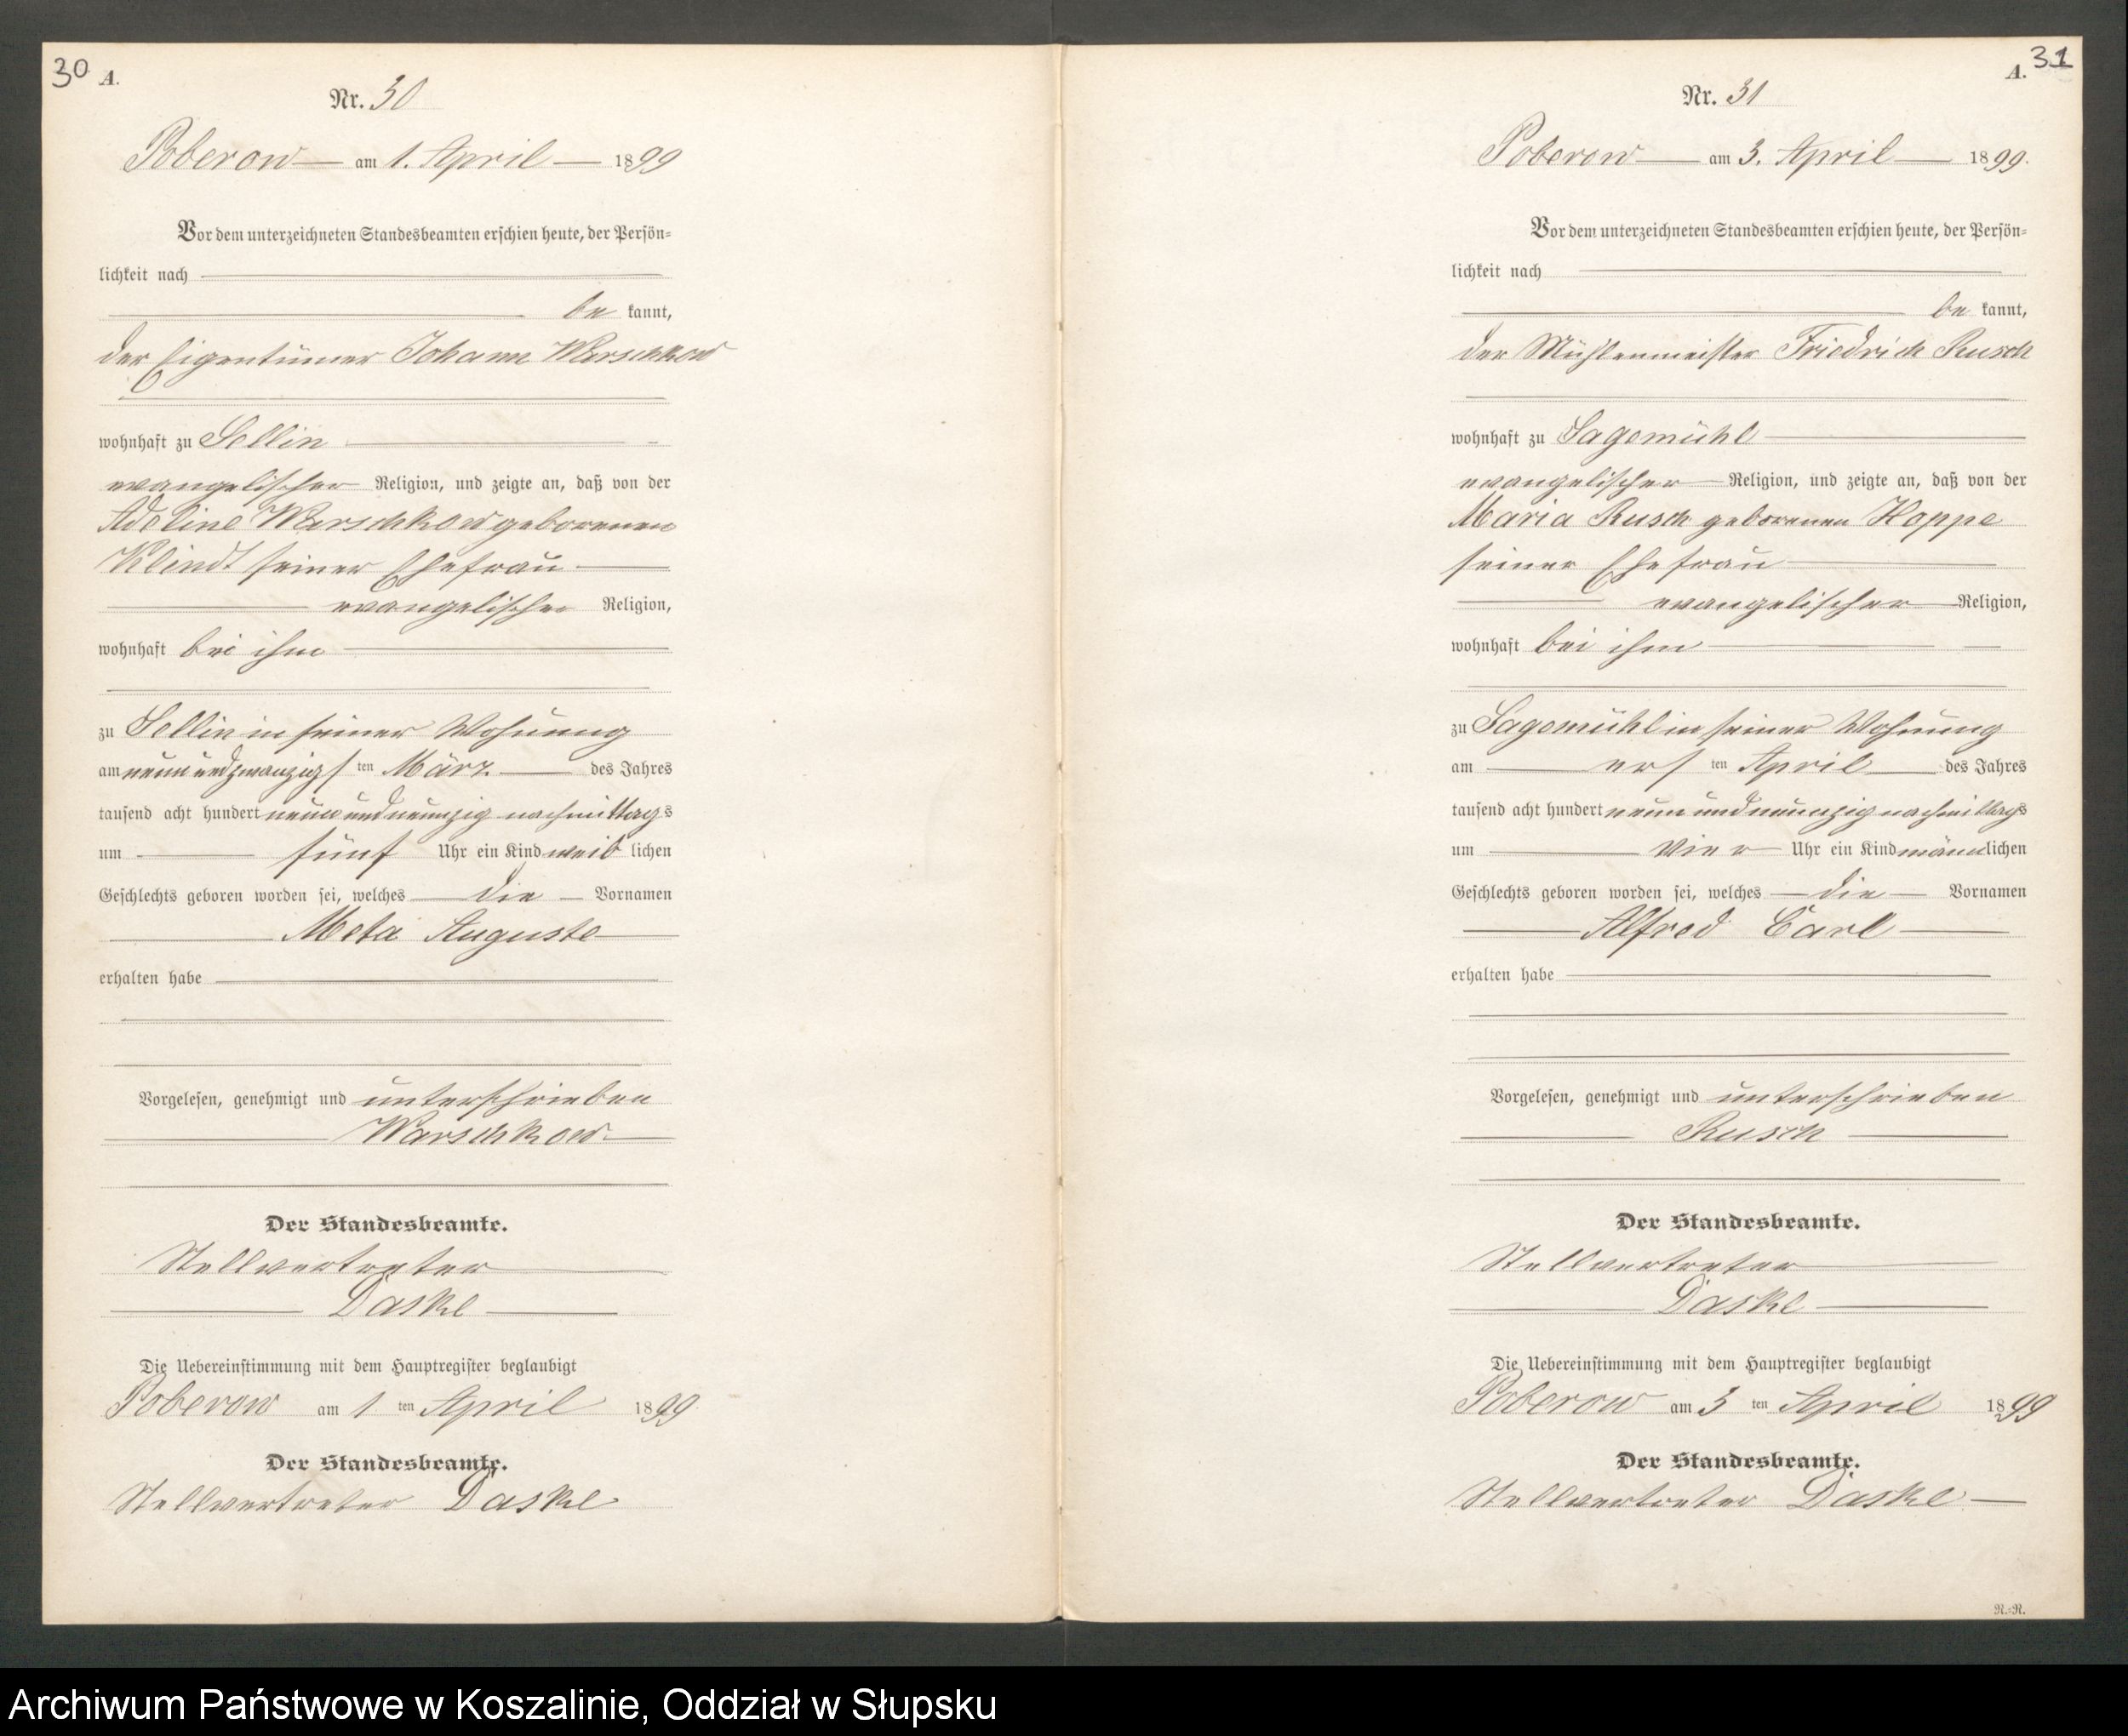 30 A.
Nr. 30
Poberow am 1. April 1899
Vor dem unterzeichneten Standesbeamten erschien heute, der Persön-
lichkeit nach
be kannt,
der Eigentümer Johann Warschkow
wohnhaft zu Sellin
evangelischer Religion, und zeigte an, daß von der
Adeline Warschkow geborenen
Klindt seiner Ehefrau
evangelischer Religion,
wohnhaft bei ihm
zu Sellin in seiner Wohnung
am neunundzwanzigsten März des Jahres
tausend acht hundert neunundneunzig nachmittags
um fünf Uhr ein Kind weiblichen
Geschlechts geboren worden sei, welches die Vornamen
Meta Auguste
erhalten habe
Vorgelesen, genehmigt und unterschrieben
Warschkow
Der Standesbeamte.
Stellvertreter
Daske
Die Uebereinstimmung mit dem Hauptregister beglaubigt
Poberow am 1 ten April 1899
Der Standesbeamte.
Stellvertreter Daske
A. 31
Nr. 31
Poberow am 3. April 1899.
Vor dem unterzeichneten Standesbeamten erschien heute, der Persön-
lichkeit nach
be kannt,
der Mühlenmeister Friedrich Rusch
wohnhaft zu Sagemühl
evangelischer Religion, und zeigte an, daß von der
Maria Rusch geborenen Hoppe
seiner Ehefrau
evangelischer Religion,
wohnhaft bei ihm
zu Sagemühl in seiner Wohnung
am ersten April des Jahres
tausend acht hundert neunundneunzig nachmittags
um vier Uhr ein Kind männlichen
Geschlechts geboren worden sei, welches die Vornamen
Alfred Carl
erhalten habe
Vorgelesen, genehmigt und unterschrieben
Rusch
Der Standesbeamte.
Stellvertreter
Daske
Die Uebereinstimmung mit dem Hauptregister beglaubigt
Poberow am 3 ten April 1899
Der Standesbeamte.
Stellvertreter Daske
R.-R.
Archiwum Państwowe w Koszalinie, Oddział w Słupsku